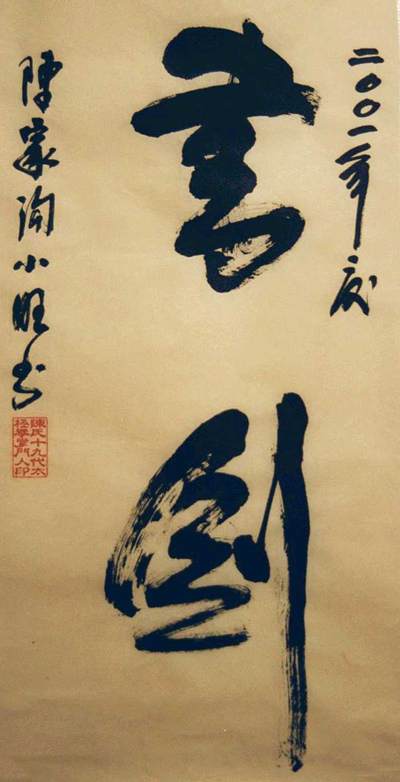 二〇〇一年夏
書劍
陳家沟小旺书
陳氏十九代太
極拳掌門人印